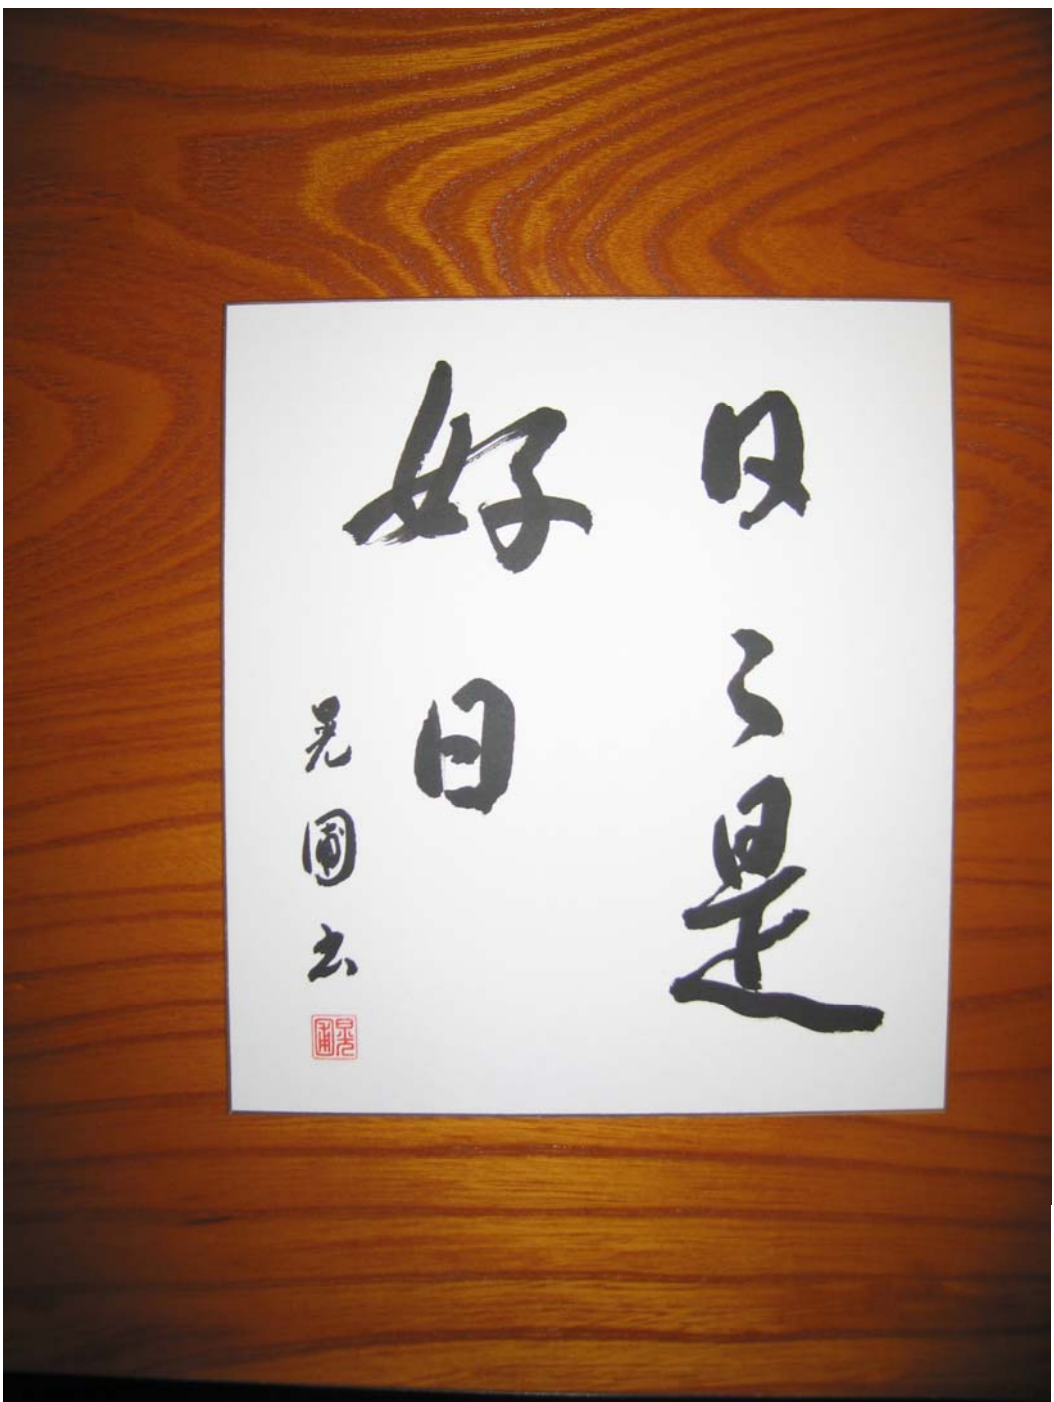 日々是
好日
晃圃书
晃圃